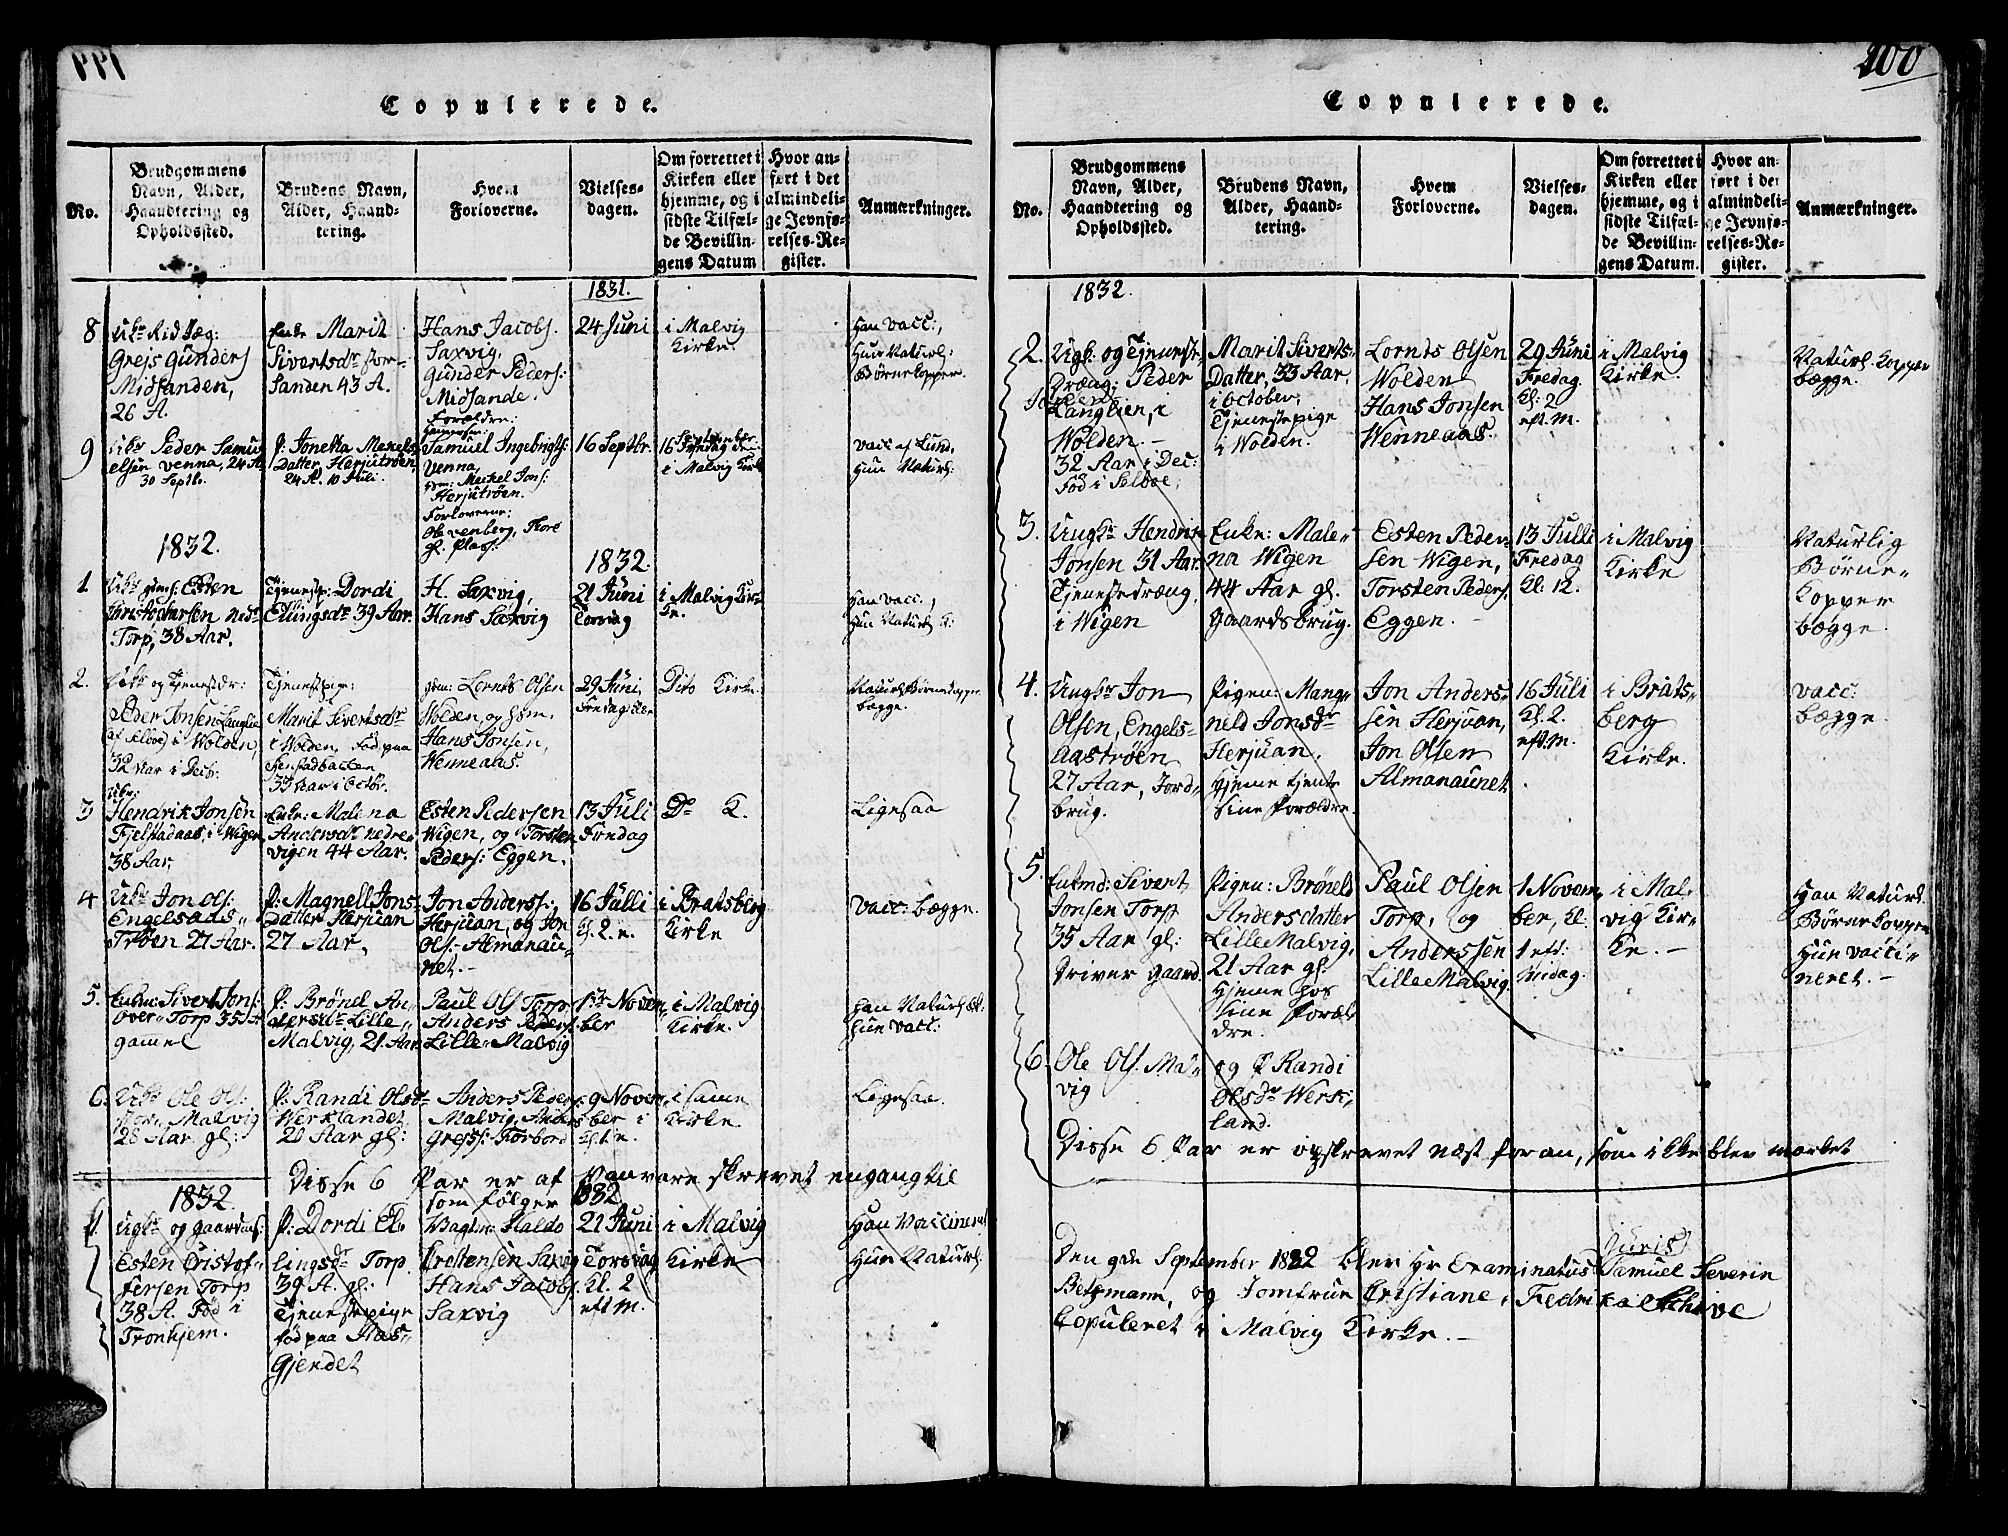 199
Copulerede.
No.
Brudgommens
Navn, Alder,
Haandtering og
Opholdssted.
Brudens Navn,
Alder, Haand-
tering.
Hvem
Forloverne.
Vielses-
dagen.
Om forrettet i
Kirken eller
hjemme, og i
sidste Tilfæl-
de Bevillin-
gens Datum
Hvor an-
ført i det
almindeli-
ge Jevnfø-
relses-Re-
gister.
Anmærkninger.
1831.
8
Grejs Gunders
Midsanden,
26 A.
Enke Marit
Sivertsdr
Sanden 43 A.
Hans Jacobs.
Saxvig,
Gunder Peders:
Midsande.
24 Juni
i Malvig
Kirke.
Han vacc:,
Hun Naturl:
Børnekopper.
9
Peder Samu
elsen Venna, 24 A
30 Septb.
P: Jonetta
Datter, Herjutrøen,
24 A. 10 Juli.
Foreldre:
Samuel Ingebrigts:
Venna,
Michel Jons:
Herjutrøen.
Forloverne:
Ole Venberg, Tore
16 Septbr.
16 September
i Malvig Kirk
vacc af Lund,
Hun Naturl:
1832.
1832.
1
Esten
Christophersen
Torp, 38 Aar.
Tjeneste: Dordi
Ellingsdr 39 Aar.
H. Saxvig,
Hans Saxvig
21 Juni
Torsdag
i Malvig Kir-
ke.
Han vacc:,
Hun Naturl K:
2.
og Tjenestdr:
Peder Jonsen Langlie
(af Selboe) i Wolden,
32 Aar i Decb:
Tjenestpige:
Marit Sivertsdr
i Wolden, Fød paa
33 Aar i Octbr.
gdm: Lornts Olsen
Wolden, og
Hans Jonsen,
Wenneaas.
29 Juni,
Fredag
Dito Kirke.
Naturl: Børnekopper
begge.
3
Ubr:
Hendrik Jonsen
Fjelstadaas, i Wigen
38 Aar,
Enke: Malena
Andersdr nedre-
vigen 44 Aar.
Esten Pedersen
Wigen, og Torsten
Peders: Eggen.
13 Juli
Fredag
Do K.
Ligesaa
4
Jon Ols:
Engelsaas-
Trøen 27 Aar.
P: Magnell Jons-
Datter Herjuan
27 Aar,
Jon Anderss:
Herjuan, og Jon
Ols:- Almanau-
net.-
16 Julli
Kl. 2. e.
i Bratsberg
Kirke
Vacc: begge.
5.
Enkm: Sivert Jons:
Over-Torp 35 A
gamel
P: Brønel An-
dersdr Lille-
Malvig, 21 Aar
Paul Ols Torp
Anders Peders:
Lille-Malvig
1ste Novem-
ber
i Malvig
Kirke.
Han Naturl:
Hun vacc:
6.
Ole Ols:
Malvig
28 Aar gl:
P: Randi Olsdr
Werklandet,
20 Aar gl:
Anders Peders:
Malvig, Anders
Grejss: Forbord
9 Novem-
ber
i same
Kirke.
Ligesaa.
Disse 6 Par er af Vanvare skrevet engang til
som følger
1832.
1832
1.
og gaardm:
Esten Cristof-
fersen Torp
38 A. Fød i
Tronhjem.
P: Dordi El-
lingsdr Torp
39 A. gl:
Tjenestepige
fød paa
Gjerdet
Haldo
Crestensen Saxvig
Hans Jacobs:
Saxvig
21 Juni
Torsdag
Kl. 2
eft M.
i Malvig
Kirke
Han Vaccineret
Hun Naturl:
200
Copulerede.
No.
Brudgommens
Navn, Alder,
Haandtering og
Opholdssted.
Brudens Navn,
Alder, Haand-
tering.
Hvem
Forloverne.
Vielses-
dagen.
Om forrettet i
Kirken eller
hjemme, og i
sidste Tilfæl-
de Bevillin-
gens Datum.
Hvor an-
ført i det
almindeli-
ge Jevnfø-
relses-Re-
gister.
Anmærkninger.
1832.
2.
Ugk. og Tjeneste
Dræng: Peder
Jonsen
Langlien, i
Wolden.-
32 Aar i Dec:
Fød i Selboe,
Marit Siverts-
Datter, 33 Aar,
i October,
Tjenestepige
i Wolden.
Lornts Olsen
Wolden
Hans Jonsen
Wenneaas.
29 Juni
Fredag.
Kl. 2
eft. M.
i Malvig
Kirke.
Naturl. Kopper
begge.
3.
Ungkr Hendrik
Jonsen 31 Aar.
Tjenestedræng,
i Wigen
Enke: Male-
na Wigen
44 Aar gl.
Gaardsbrug.
Esten Peder-
sen Wigen,
Torsten Peders.
Eggen.
13 Julli
Fredag
Kl. 12.
i Malvig
Kirke
Naturlig
Børne-
Kopper
begge.
4.
Ungkr Jon
Olsen, Engels-
Aastrøen
27 Aar, Jord-
brug.
Pigen: Mang-
neld Jonsdr
Herjuan.
Hjeme tjente
Sine Forældre
Jon Anders-
sen Herjuan,
Jon Olsen
Almanaunet
16 Juli
Kl. 2.
eft. M.
i Brats-
berg
Kirke.
vacc:
begge.
5.
Enkmd: Sivert
Jonsen Torp
35 Aar gl:
Driver Gaard.
Pigen: Brøneld
Andersdatter
Lille Malvig,
21 Aar gl:
Hjeme hos
Sine Foræl-
dre.
Paul Olsen
Torp, og
Anderssen
Lille Malvig.
1 Novem-
ber, Kl.
1 eft:
Midag.
i Mal-
vig Kir-
ke.-
Han Naturl.
Børnekopper
Hun vacci-
neret.-
6.
Ole Ols. Mal-
vig
og P Randi
Olsdr Werk-
land.
Disse 6 Par er opskrevet næst foran, som ikke blev mærket
Den September 1832 blev Hr Examinatus Juris Samuel Severin
Betzmann, og Jomfrue Cristiane, Fedrika Schive
Copuleret i Malvig Kirke.-